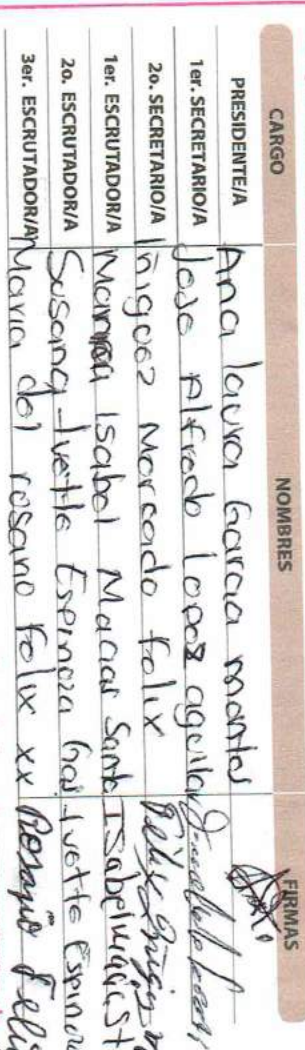 CARGO NOMBRES FIRMAS
PRESIDENTE/A Ana laura Garcia montes
1er. SECRETARIO/A Jose Alfredo Lopez aguilar
2o. SECRETARIO/A Iñiguez Mercado Felix
1er. ESCRUTADOR/A Isabel Macias Santo Isabel Macias St
2o. ESCRUTADOR/A Susana Ivette Espinoza Gai Ivette Espinoza
3er. ESCRUTADOR/A Maria del rosario Felix xx Rosario Felix